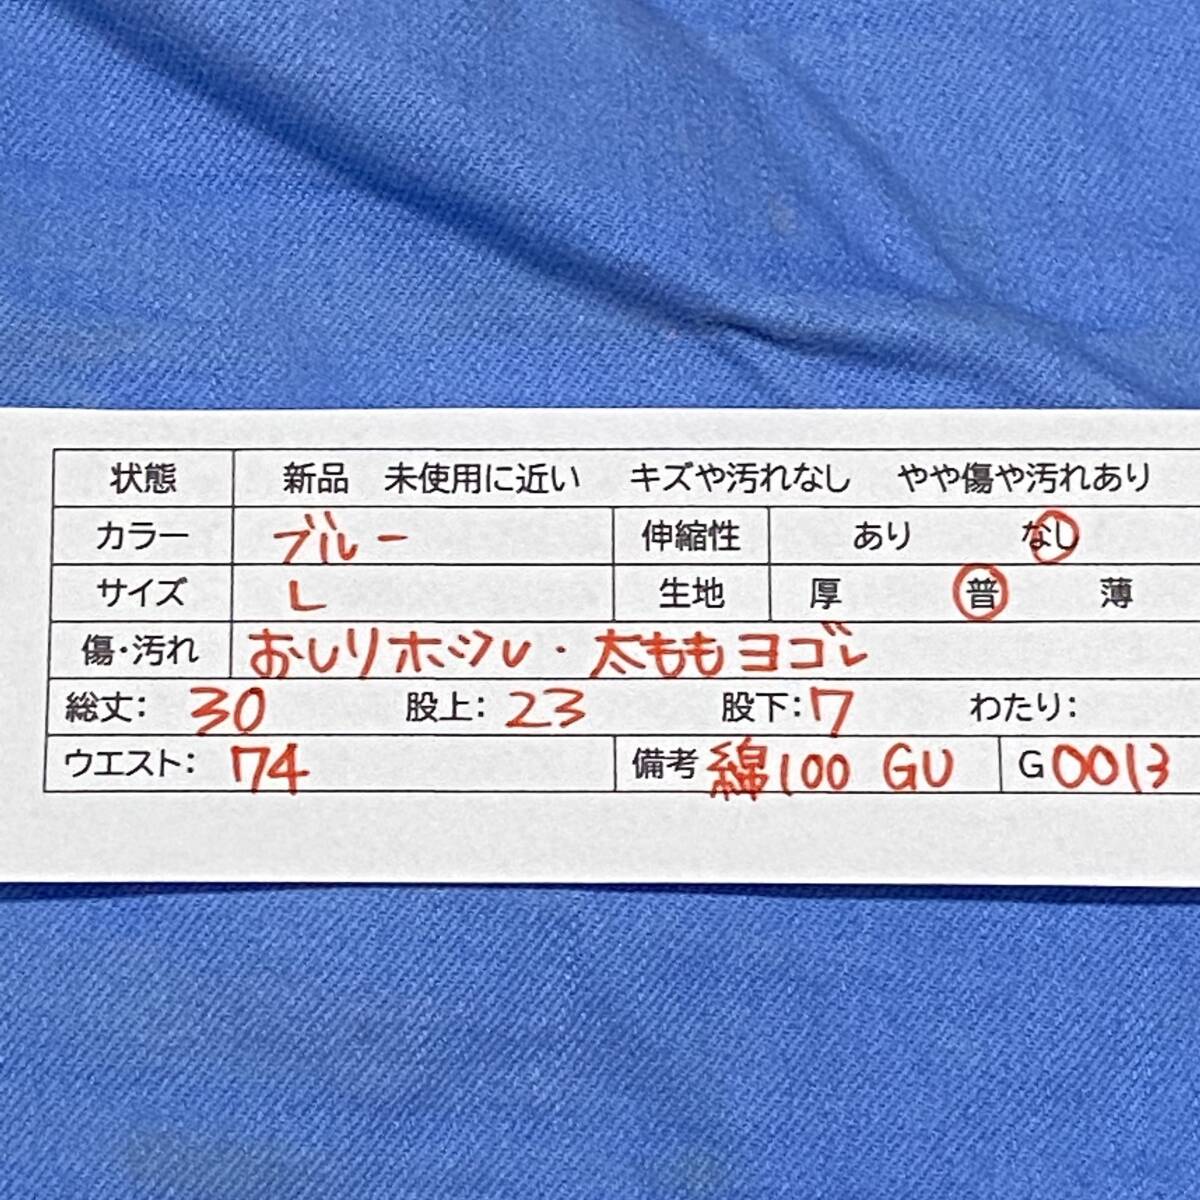 状態 新品 未使用に近い キズや汚れなし やや傷や汚れあり
カラー ブルー 伸縮性 あり なし
サイズ L 生地 厚 普 薄
傷・汚れ おしりホツレ・太ももヨゴレ
総丈: 30 股上: 23 股下: 7 わたり:
ウエスト: 74 備考 綿100 GU G0013